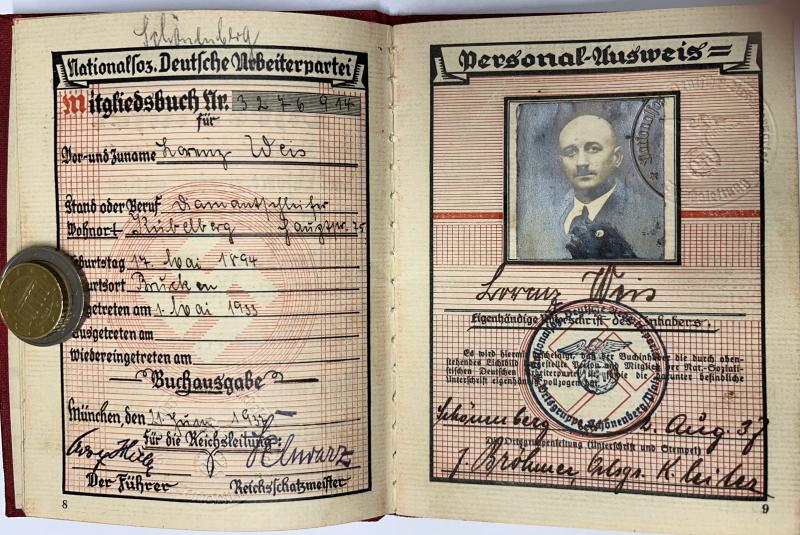 Schönenberg
Nationalsoz. Deutsche Arbeiterpartei
Mitgliedsbuch Nr. 3276914
für
Vor- und Zuname Lorenz Weis
Stand oder Beruf Diamantschleifer
Wohnort Kübelberg Hauptstr. 25
Geburtstag 17. Mai 1894
Geburtsort Brücken
Eingetreten am 1. Mai 1933
Ausgetreten am
Wiedereingetreten am
Buchausgabe
München, den 21. Juni 1937
Für die Reichsleitung:
Schwarz
Der Führer Reichsschatzmeister
8
Personal-Ausweis
Lorenz Weis
Eigenhändige Unterschrift des Inhabers.
Es wird hiermit bescheinigt, daß der Buchinhaber die durch oben-
stehendes Lichtbild dargestellte Person und Mitglied der Nat.-Soziali-
stischen Deutschen Arbeiterpartei ist und die darunter befindliche
Unterschrift eigenhändig vollzogen hat.
Ortsgruppe Schönenberg/Pfalz
Schönenberg 2. Aug. 37
Die Ortsgruppenleitung (Unterschrift und Stempel)
J. Bröhmer, Ortsgr. K. leiter
9